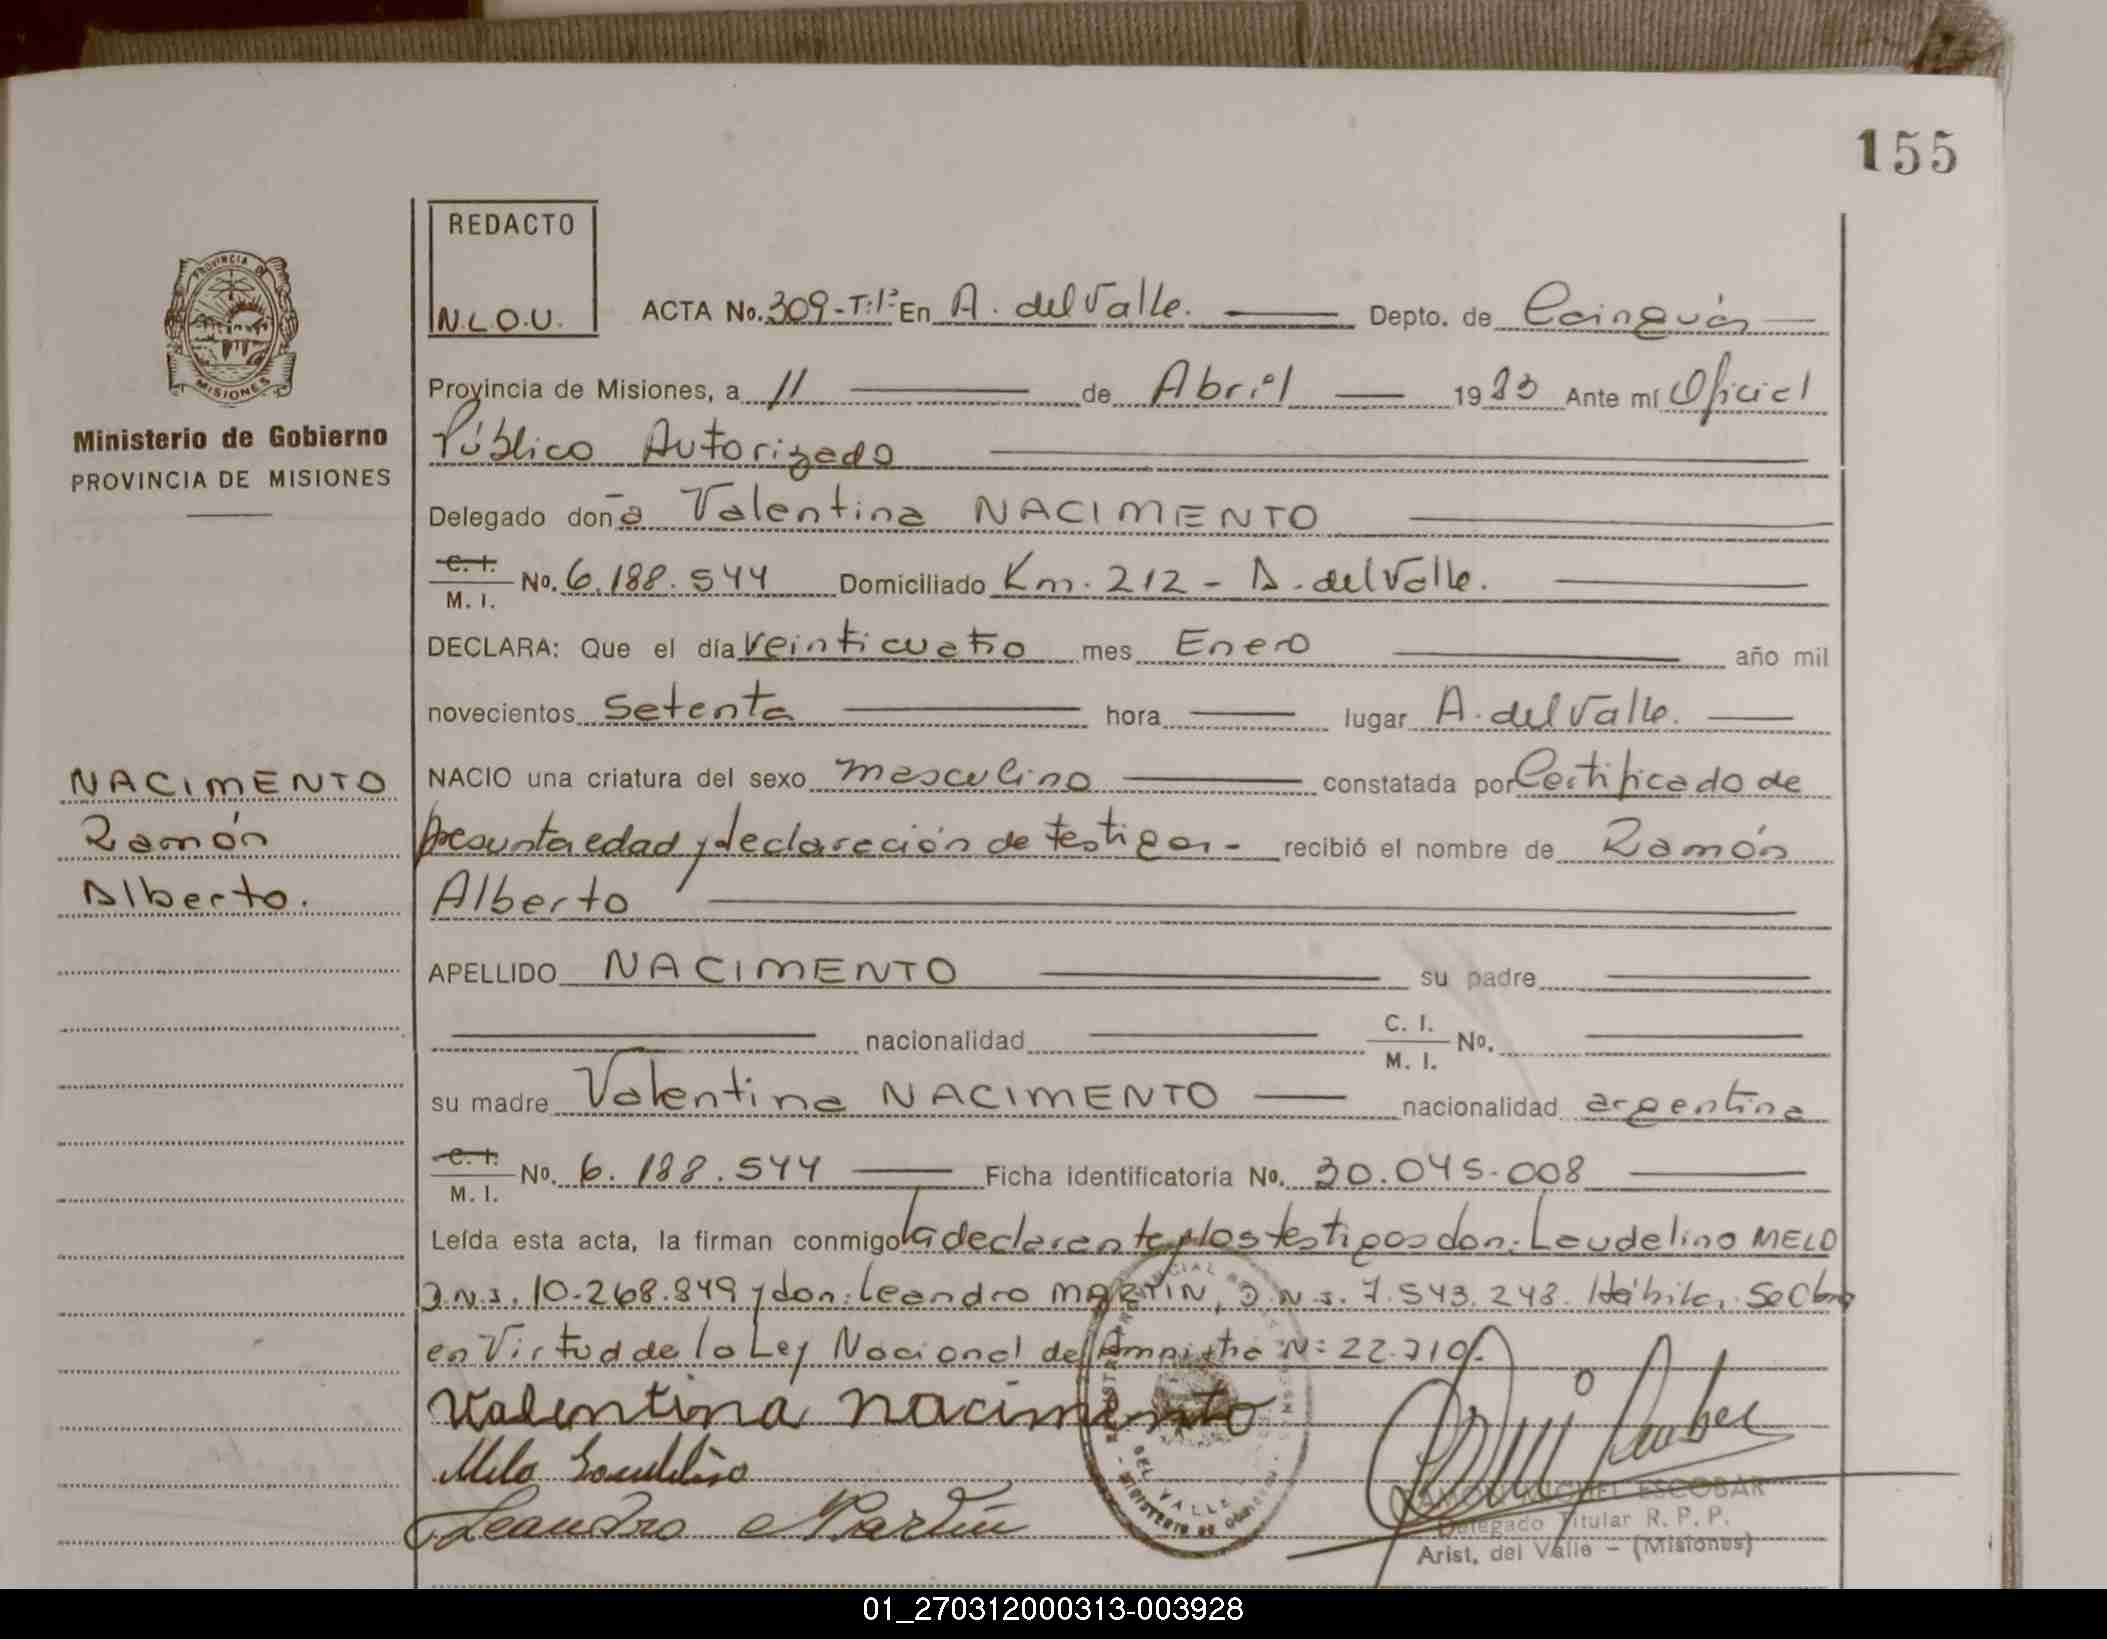 155
REDACTO
N.L.O.U.
PROVINCIA DE
MISIONES
Ministerio de Gobierno
PROVINCIA DE MISIONES
ACTA No. 309-T:1º En A. del Valle. Depto. de Cainguás
Provincia de Misiones, a 11 de Abril 1983 Ante mí Oficial
Público Autorizado
Delegado doña Valentina NACIMENTO
C. I. M. I. No. 6.188.544 Domiciliado Km. 212 - A. del Valle.
DECLARA: Que el día veinticuatro mes Enero año mil
novecientos setenta hora lugar A. del Valle.
NACIO una criatura del sexo masculino constatada por Certificado de
presunta edad y declaración de testigos- recibió el nombre de Ramón
Alberto
NACIMENTO
Ramón
Alberto.
APELLIDO NACIMENTO su padre
nacionalidad C. I. M. I. No.
su madre Valentina NACIMENTO nacionalidad argentina
C. I. M. I. No. 6.188.544 Ficha identificatoria No. 30.045.008
Leída esta acta, la firman conmigo la declarante y los testigos don: Laudelino MELO
D.N.I. 10.268.849 y don: Leandro MARTIN, D.N.I. 7.543.248. Hábiles, se labra
en Virtud de la Ley Nacional de Amnistía Nº 22.710.
Valentina nacimento
Melo Laudelino
Leandro Martin
DEL VALLE
MINISTERIO DE GOBIERNO
RAMON MIGUEL ESCOBAR
Delegado Titular R. P. P.
Arist. del Valle - (Misiones)
01_270312000313-003928